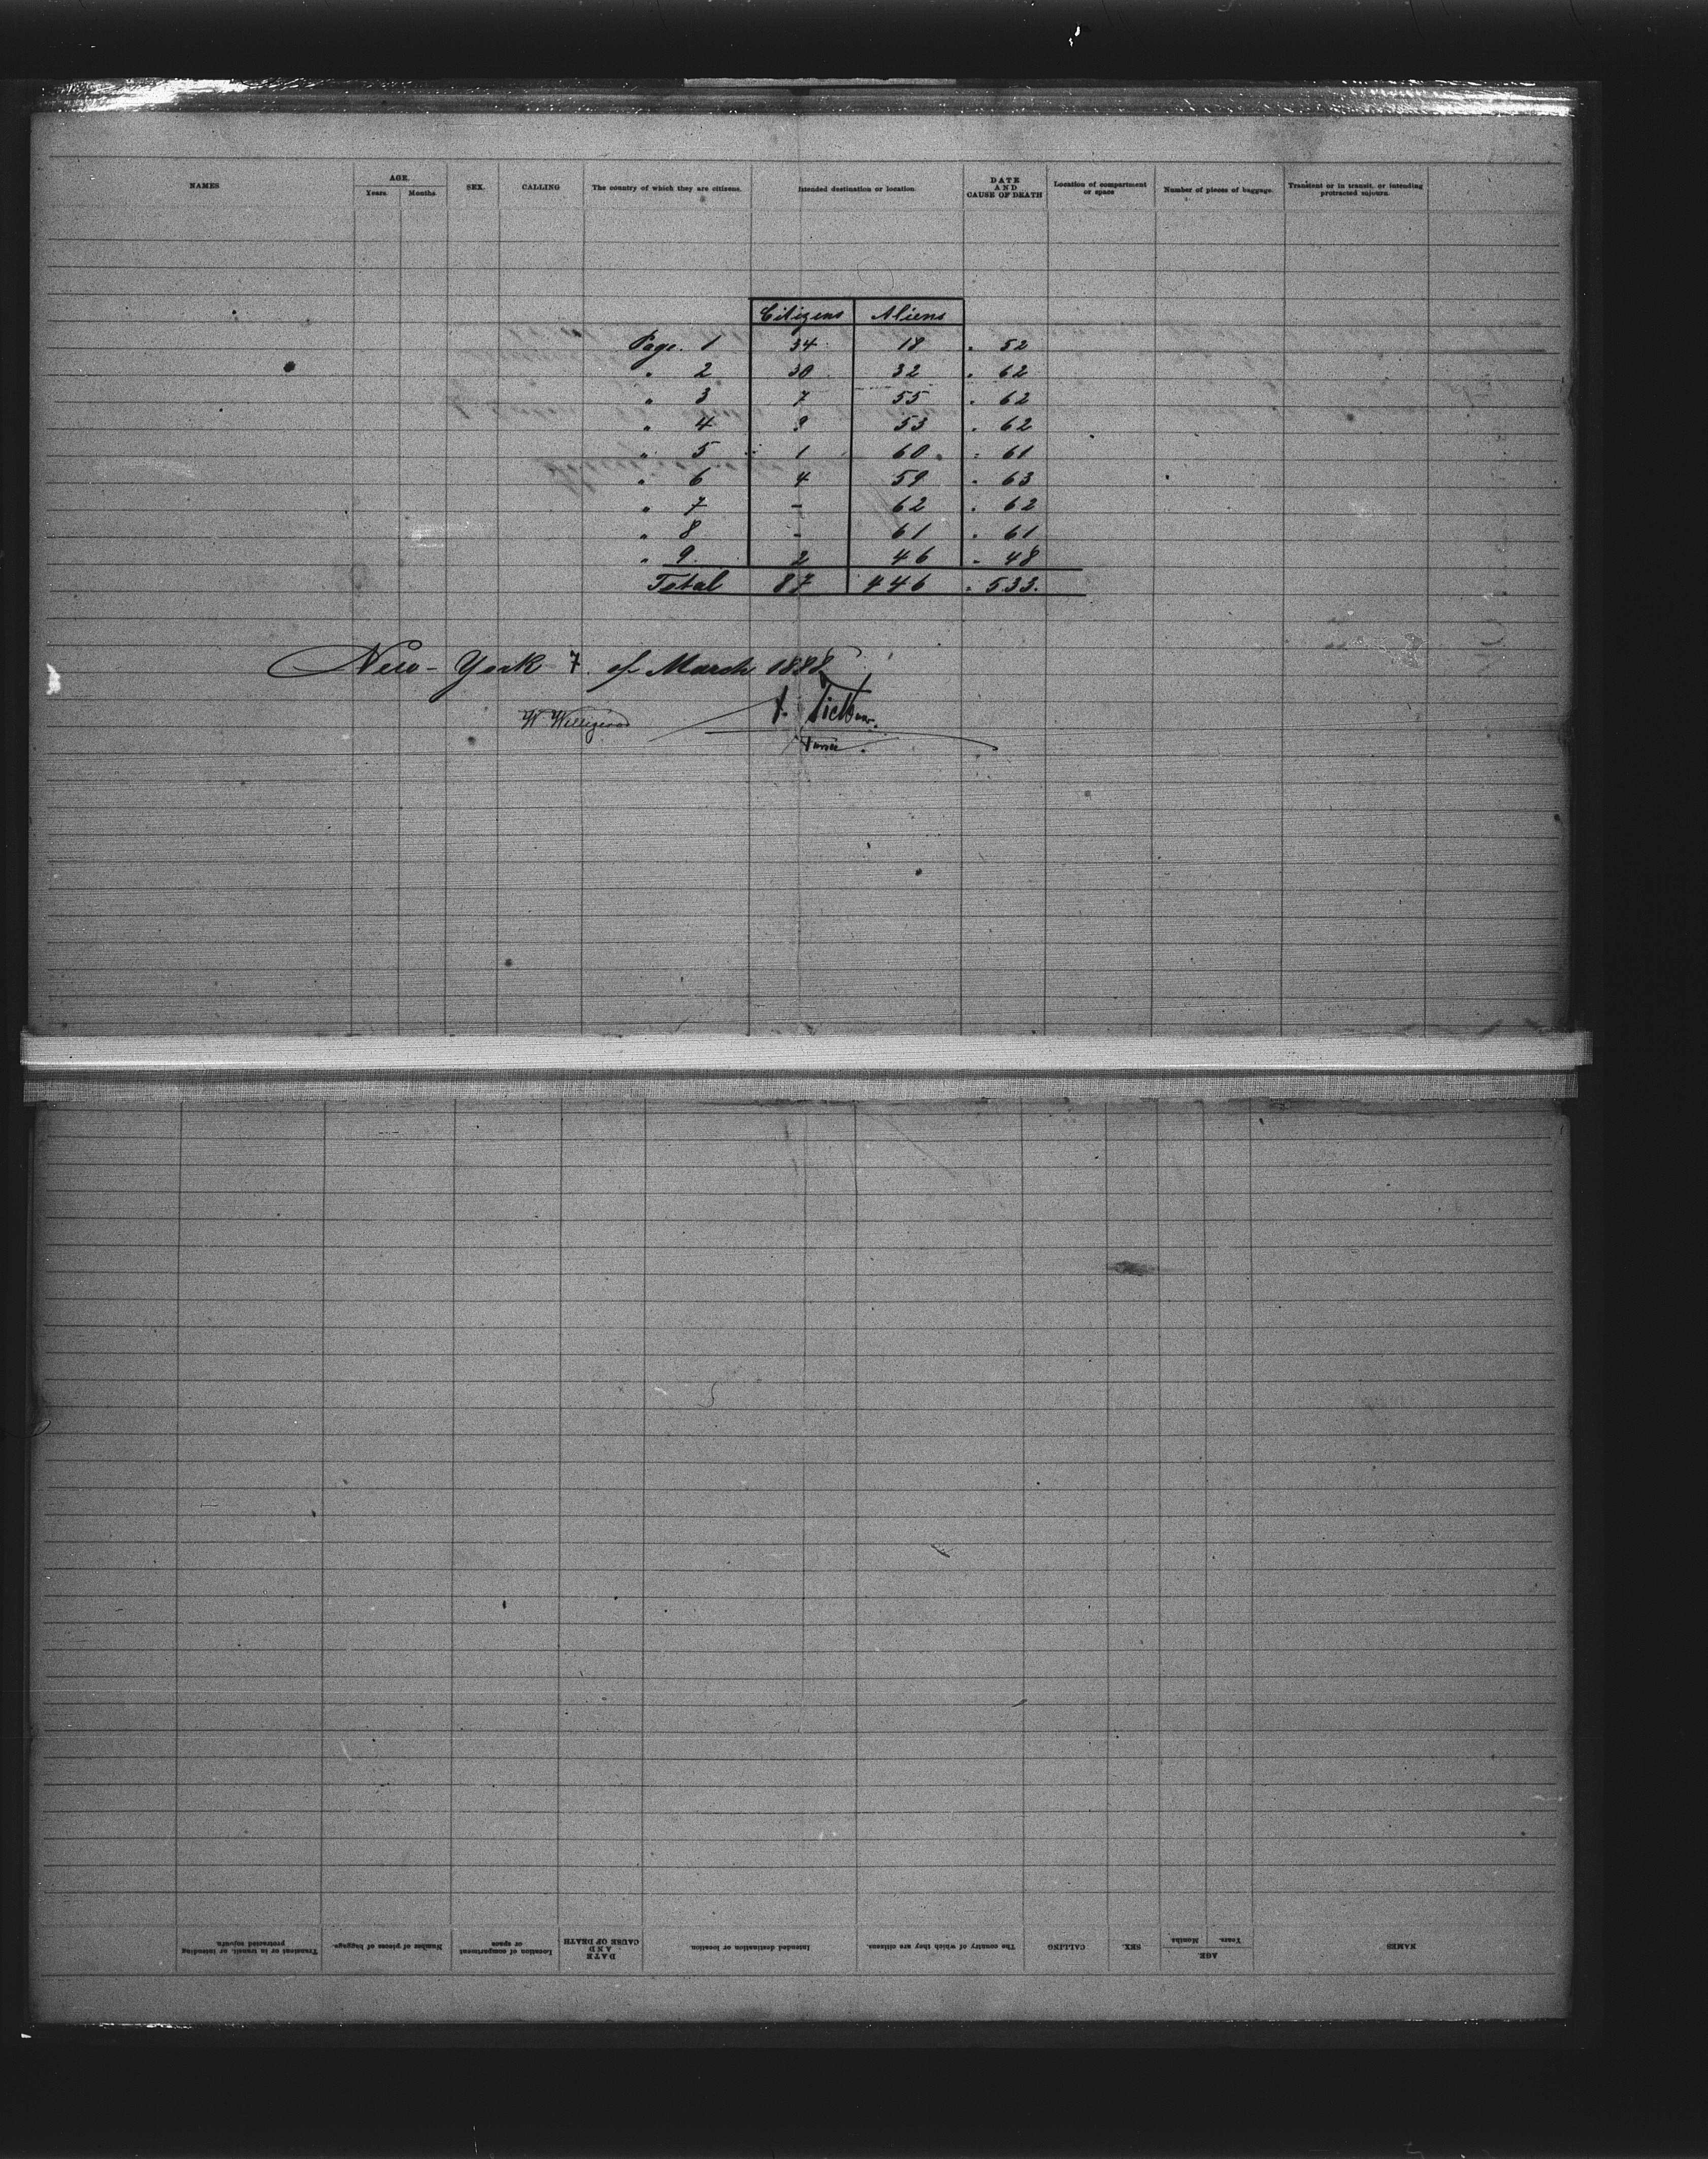 NAMES AGE. SEX. CALLING The country of which they are citizens. Intended destination or location DATE AND CAUSE OF DEATH Location of compartment or space Number of pieces of baggage. Transient or in transit, or intending protracted sojourn.
Years. Months.
Citizens Aliens
Page. 1 34 18 = 52
" 2 30 32 = 62
" 3 7 55 = 62
" 4 9 53 = 62
" 5 1 60 = 61
" 6 4 59 = 63
" 7 - 62 = 62
" 8 - 61 = 61
" 9. 2 46 = 48
Total 87 446 = 533.
New-York 7. of March 1888
W Willigerod
NAMES AGE. SEX. CALLING The country of which they are citizens. Intended destination or location. DATE AND CAUSE OF DEATH Location of compartment or space Number of pieces of baggage. Transient or in transit, or intending protracted sojourn.
Years. Months